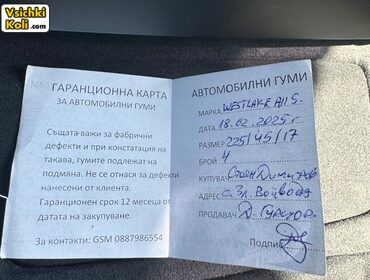 Vsichki
Koli.com
ГАРАНЦИОННА КАРТА
ЗА АВТОМОБИЛНИ ГУМИ
Същата важи за фабрични
дефекти и при констатация на
такава, гумите подлежат на
подмяна. Не се отнася за дефекти
нанесени от клиента.
Гаранционен срок 12 месеца от
датата на закупуване.
За контакти: GSM 0887986554
АВТОМОБИЛНИ ГУМИ
МАРКА WESTLAKE All S.
ДАТА 18.02.2025г
РАЗМЕР 225/45/17
БРОЙ 4
КУПУВАЧ Стоян Димитров
АДРЕС с. Зл. Войвода
ПРОДАВАЧ Д.
Подпис